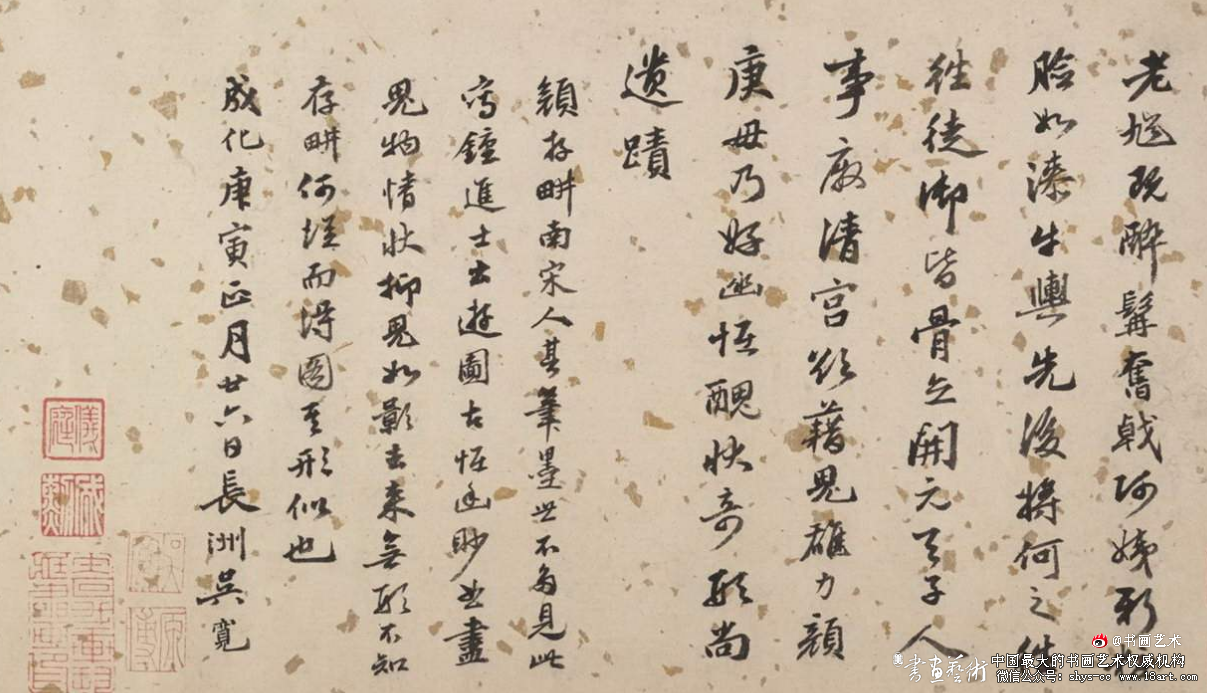 老馗既醉髯奮戟阿姨新
臉如漆牛輿先後將何之
徒御皆骨立開元天子人
事廢清宮欲藉鬼雄力顏
庚毋乃好幽怪醜狀奇形尚
遺蹟
顏存畊南宋人其筆墨世不多見此
寫鍾進士出遊圖古怪幽眇曲盡
鬼物情狀抑鬼如影去來無形不知
存畊何從而得圖至形似也
成化庚寅正月廿六日長洲吳寬
@书画艺术
書畫藝術
中国最大的书画艺术权威机构
微信公众号：shys-cc www.18art.com